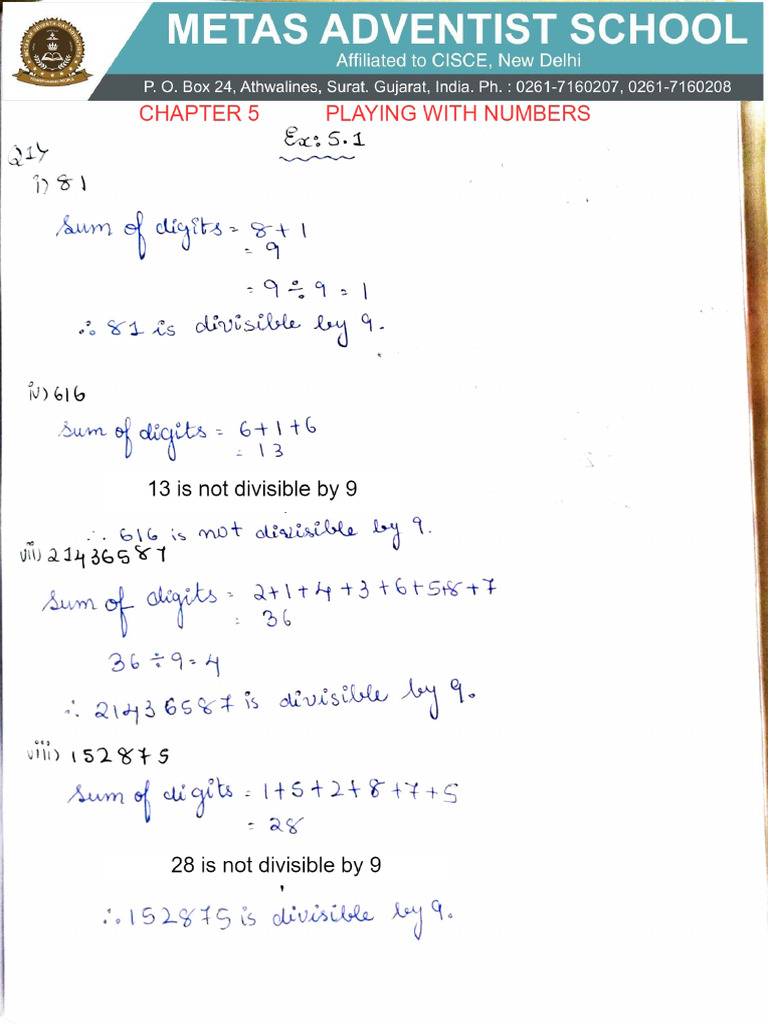 METAS ADVENTIST SCHOOL
Affiliated to CISCE, New Delhi
P. O. Box 24, Athwalines, Surat. Gujarat, India. Ph. : 0261-7160207, 0261-7160208
CHAPTER 5 PLAYING WITH NUMBERS
Ex: 5.1
Q1y
i) 81
Sum of digits = 8 + 1
= 9
= 9 ÷ 9 = 1
∴ 81 is divisible by 9.
iv) 616
Sum of digits = 6+1+6
= 13
13 is not divisible by 9
∴ 616 is not divisible by 9.
vii) 21436587
Sum of digits = 2+1+4+3+6+5+8+7
= 36
36 ÷ 9 = 4
∴ 21436587 is divisible by 9.
viii) 152875
Sum of digits = 1+5+2+8+7+5
= 28
28 is not divisible by 9
∴ 152875 is divisible by 9.